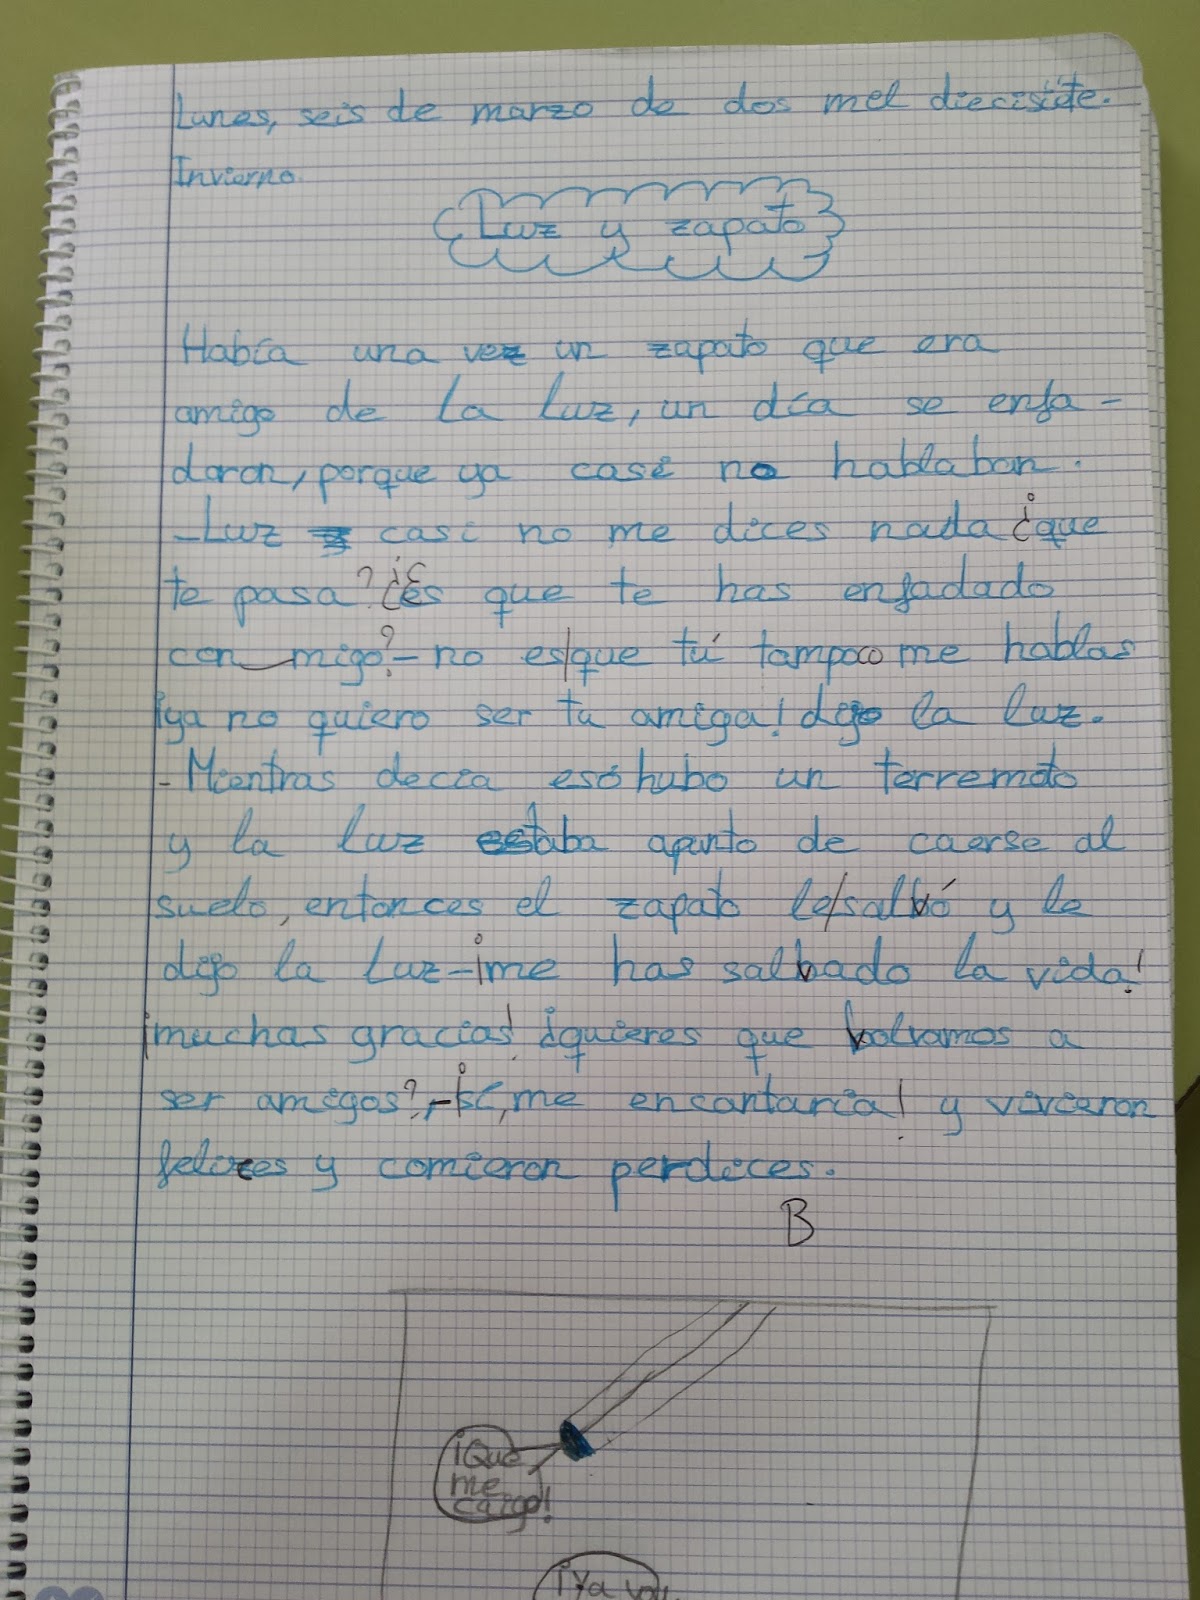 Lunes, seis de marzo de dos mil diecisiete.
Invierno.
Luz y zapato
Había una vez un zapato que era
amigo de la luz, un día se enfa-
daron, porque ya casi no hablaban.
-Luz casi no me dices nada ¿que
te pasa? ¿Es que te has enfadado
con migo? - no es que tú tampoco me hablas
¡ya no quiero ser tu amiga! dijo la luz.
- Mientras decía eso hubo un terremoto
y la luz estaba apunto de caerse al
suelo, entonces el zapato le salvó y le
dijo la luz - ¡me has salvado la vida!
¡muchas gracias! ¿quieres que volvamos a
ser amigos?, - ¡sí, me encantaría! y vivieron
felices y comieron perdices.
B
¡Que
me
caigo!
¡Ya voy